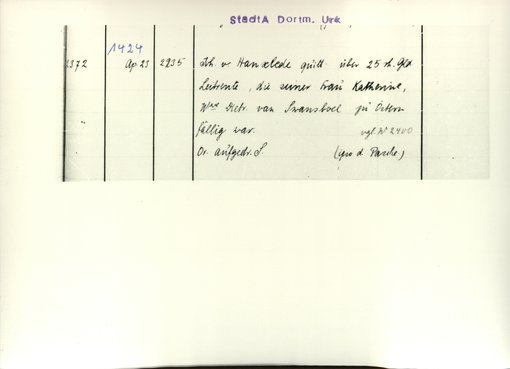 StadtA Dortm. Urk
1424
2372 Ap 23 2835 Joh v Hanxlede quitt. über 25 rh. Gld
Leibrente, die seiner Frau Katherine,
Wwe Dietr. van Swansboel zu Ostern
fällig war. vgl. Nr 2400
Or. aufgedr. S. (ipso d. Pasche)